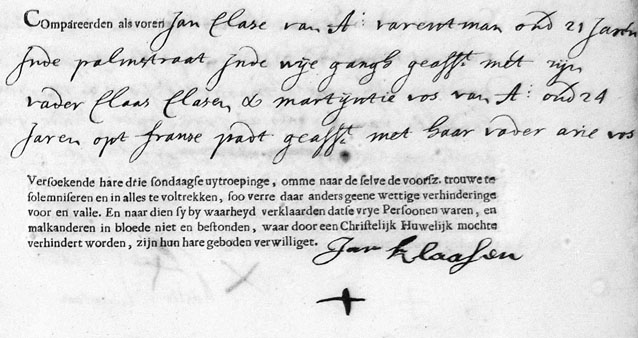 COmpareerden als voren Jan Clase van A: varentman oud 21 Jaren
Inde palmstraat inde wije gangh geasst met zijn
vader Claas Clasen & martijntie vos van A: oud 24
Jaren opt franse padt geasst met haar vader arie vos
Versoekende hare drie sondaagse uytroepinge, omme naar de selve de voorsz. trouwe te
solemniseren en in alles te voltrekken, soo verre daar anders geene wettige verhinderinge
voor en valle. En naar dien sy by waarheyd verklaarden datse vrye Persoonen waren, en
malkanderen in bloede niet en bestonden, waar door een Christelijk Huwelijk mochte
verhindert worden, zijn hun hare geboden verwilliget.
Jan Klaasen